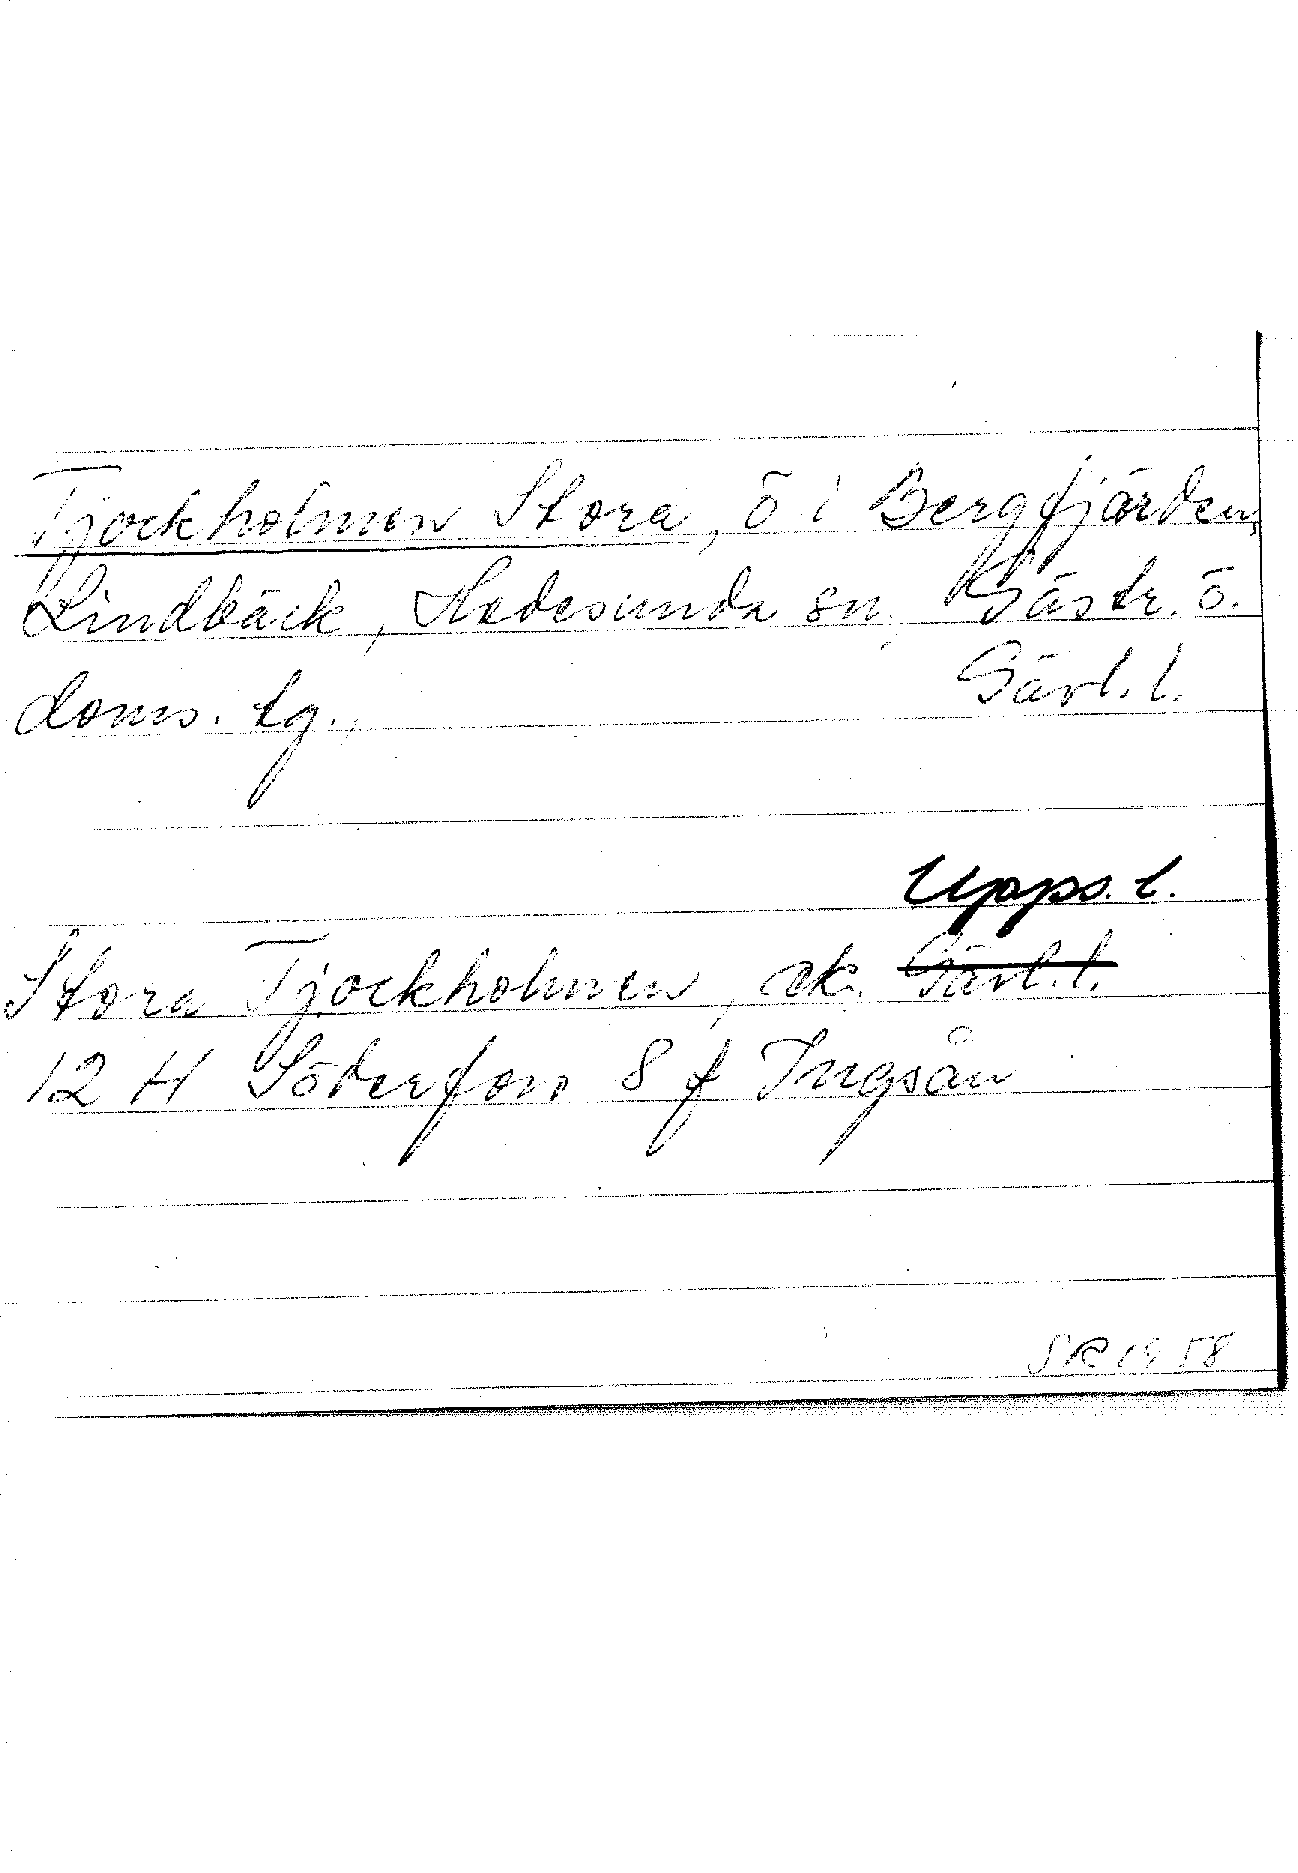 Tjockholmen Stora, ö i Bergfjärden,
Lindbäck, Hedesunda sn, Gästr. ö.
doms. tg., Gävl. l.
Upps. l.
Stora Tjockholmen, ek. Gävl. l.
12 H Söderfors 8 f Ingsån
SR 1958